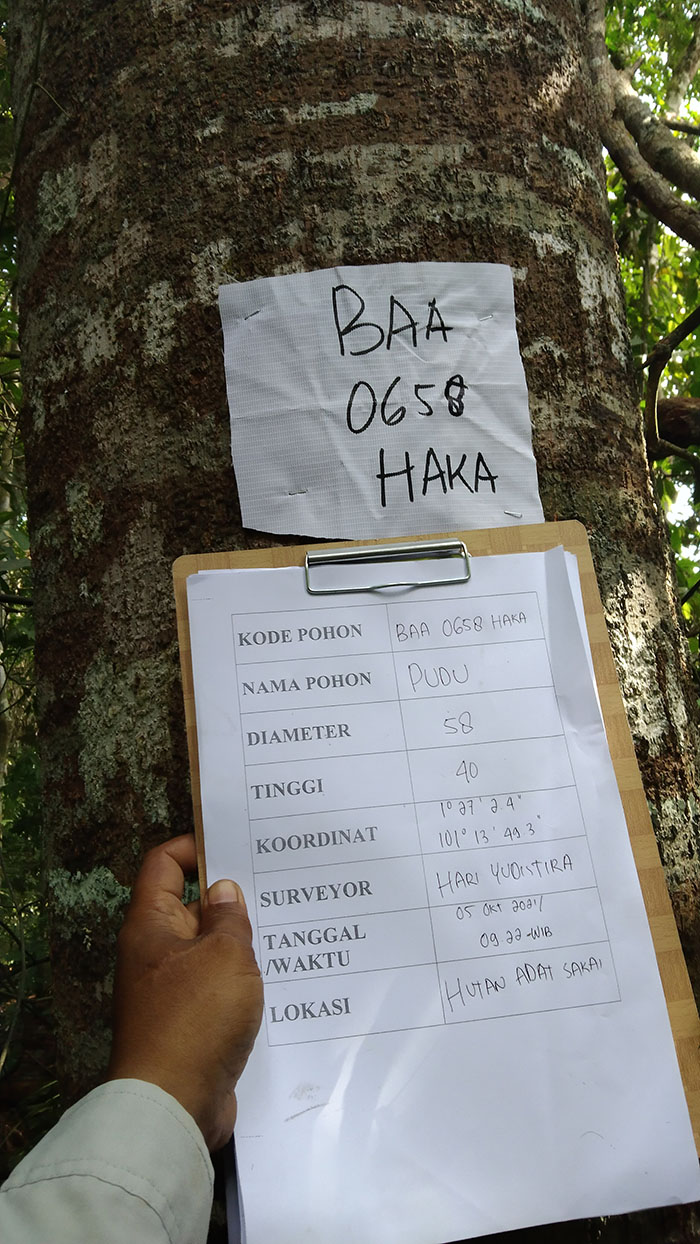 BAA
0658
HAKA
KODE POHON BAA 0658 HAKA
NAMA POHON PUDU
DIAMETER 58
TINGGI 40
KOORDINAT 1° 27' 2.4"
101° 13' 49.3"
SURVEYOR HARI YUDISTIRA
TANGGAL /WAKTU 05 OKT 2021/
09.22 -WIB
LOKASI HUTAN ADAT SAKAI